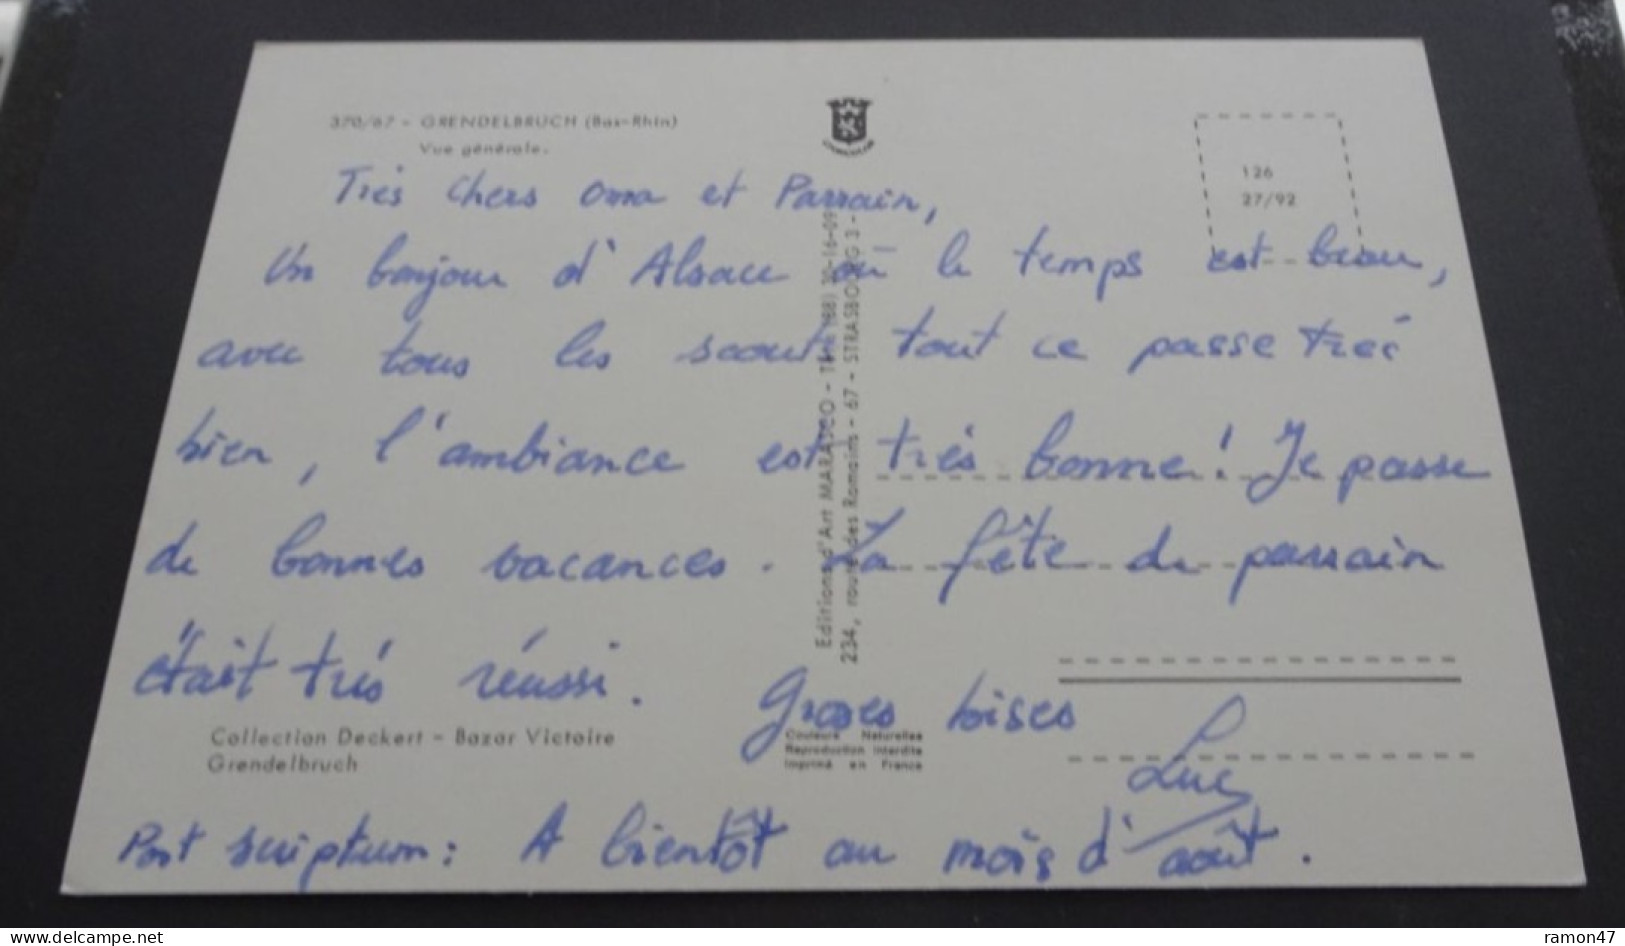 370/67 - GRENDELBRUCH (Bas-Rhin)
Vue générale.
126
27/92
Très chers oma et Parrain,
Un bonjour d'Alsace où le temps est beau,
avec tous les scouts tout ce passe très
bien, l'ambiance est très bonne! Je passe
de bonnes vacances. La fête de parrain
était très réussi.
Groses bises
Luc
Post scriptum: A bientôt au mois d'août.
Editions d'Art MARASCO - Tél. (88) 30-16-09
234, route des Romains - 67 - STRASBOURG 3 -
Collection Deckert - Bazar Victoire
Grendelbruch
Couleurs Naturelles
Reproduction Interdite
Imprimé en France
delcampe.net
ramon47